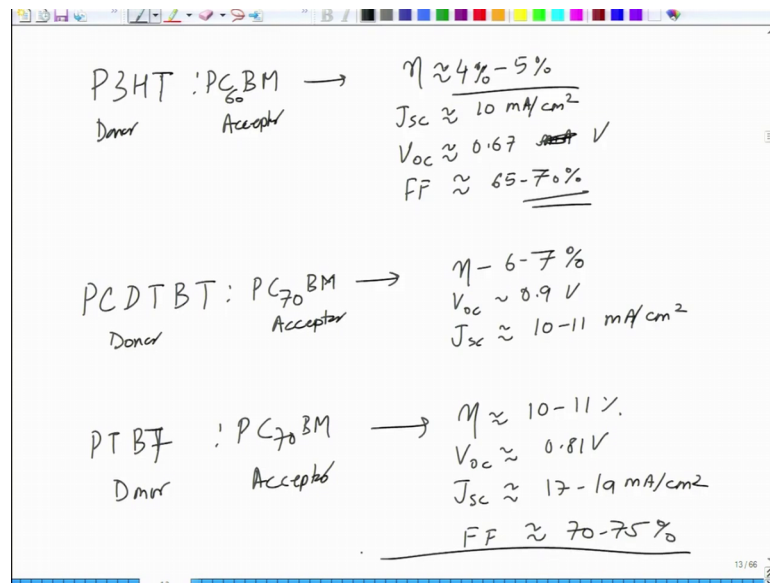 P3HT : PC60BM → η ≈ 4%-5%
Donor Acceptor Jsc ≈ 10 mA/cm²
Voc ≈ 0.67 V
FF ≈ 65-70%
PCDTBT : PC70BM → η - 6-7%
Donor Acceptor Voc ~ 0.9 V
Jsc ≈ 10-11 mA/cm²
PTB7 : PC70BM → η ≈ 10-11%.
Donor Acceptor Voc ≈ 0.81V
Jsc ≈ 17-19 mA/cm2
FF ≈ 70-75%
13/66